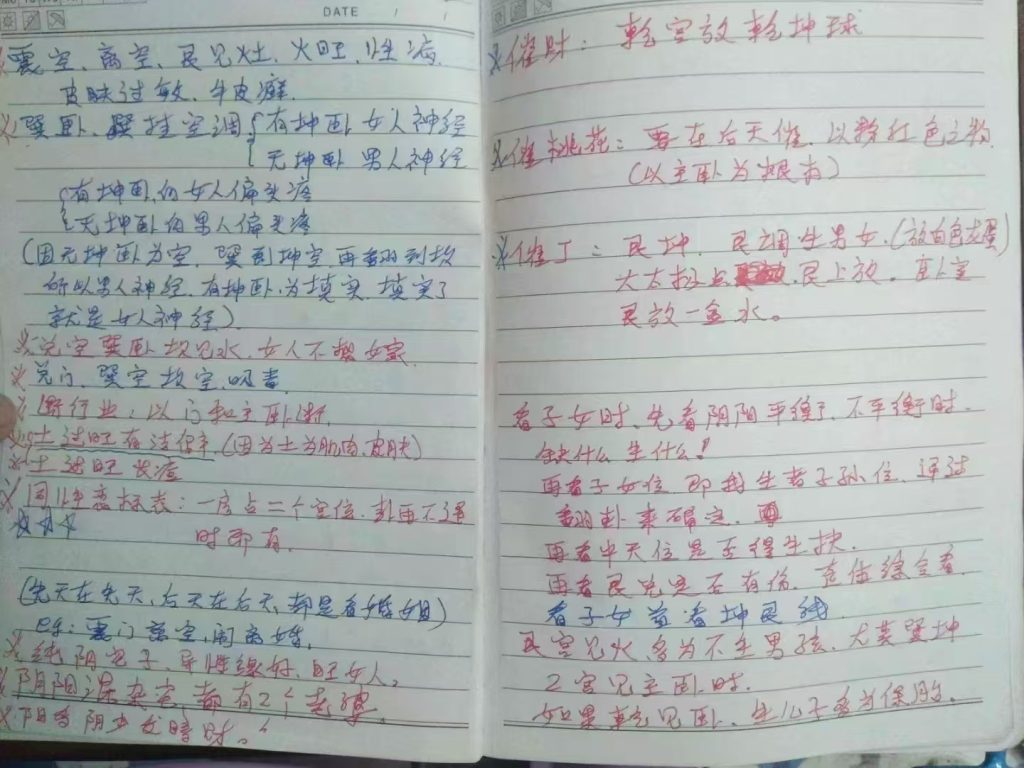 DATE / /
震空、离空、艮见灶、火旺、性病
皮肤过敏、牛皮癣
巽卧、巽挂空调 有坤卧 女人神经
无坤卧 男人神经
有坤卧的女人偏头疼
无坤卧的男人偏头疼
(因无坤卧为空, 巽到坤空, 再翻到坎
所以男人神经, 有坤卧为填实, 填实了
就是女人神经)
兑空巽卧坎见水, 女人不想女家
兑门、巽空坎空, 吸毒
断行业: 以门和主卧断
土过旺有洁(因为土为肌肉、皮肤)
土过旺
一房占二个宫位, 卦再不
时即有.
(先天在先天, 后天在后天, 都是看婚姻)
eg: 震门离空, 闹离婚,
纯阴宅子, 异性缘好, 旺女人,
阴阳混杂宅, 都有2个老婆,
阳多阴少发
催财: 乾宫放乾坤球
催桃花: 要在后天催, 以粉红色之物
(以主卧为根本)
催丁: 艮坤, 艮调生男女, (放白色
大太极点, 艮上放, 卧室
艮放一盆水。
看子女时, 先看阴阳平衡了, 不平衡时.
缺什么生什么!
再看子女位, 即我生者子孙位, 通过
翻卦来确定.
再看中天位是否得生扶.
再看艮兑是否有伤, 整体综合看
看子女首看坤艮线
艮宫见火, 多为不生男孩, 尤其巽坤
2宫见主卧时.
如果乾见卧, 生儿子多为保胎,